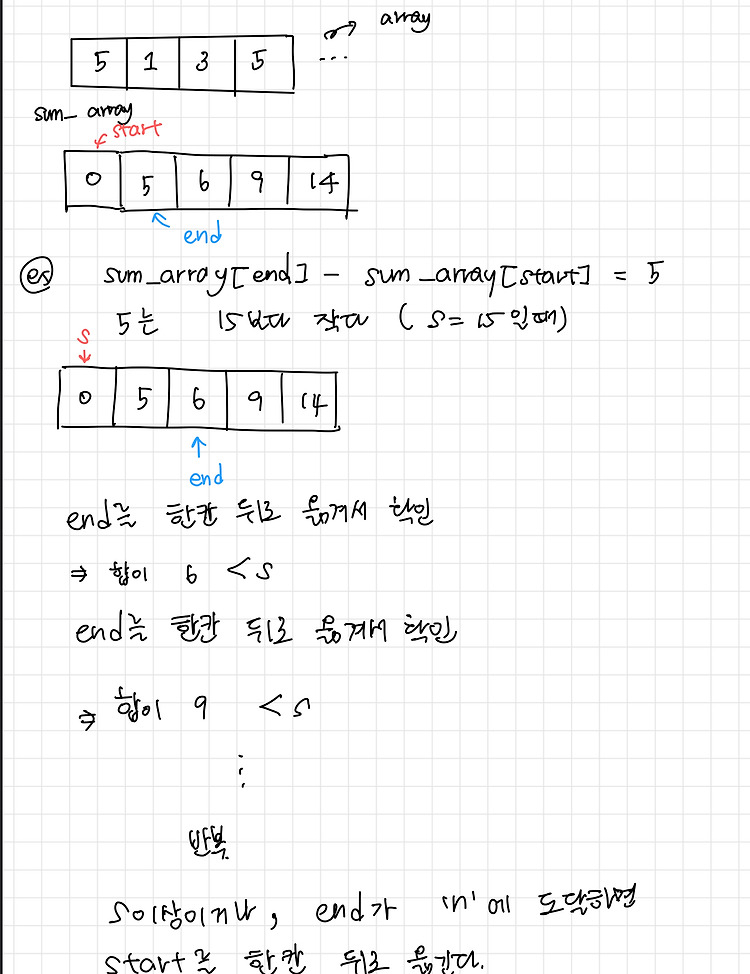 array
5 1 3 5 ...
sum_array
start
0 5 6 9 14
end
ex sum_array[end] - sum_array[start] = 5
5는 15보다 작다 ( S = 15 일때)
S
0 5 6 9 14
end
end를 한칸 뒤로 옮겨서 확인
⇒ 합이 6 < S
end를 한칸 뒤로 옮겨서 확인
⇒ 합이 9 < S
⋮
반복
S이상이거나, end가 'n'에 도달하면
start를 한칸 뒤로 옮긴다.